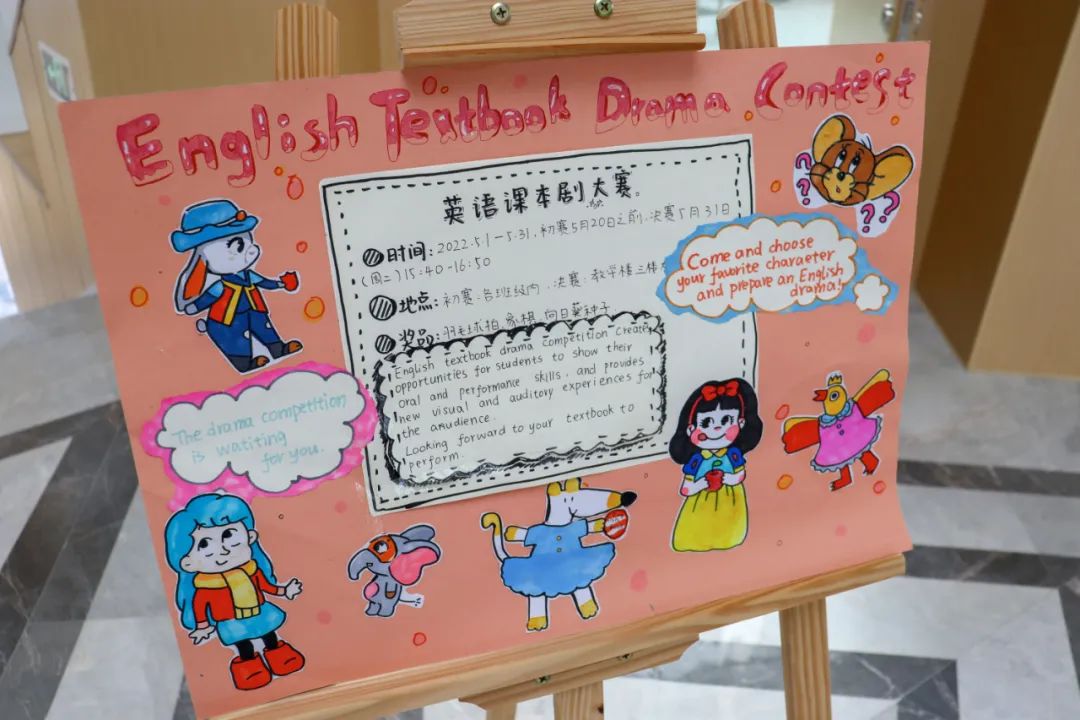 English Textbook Drama Contest
英语课本剧大赛。
时间: 2022.5.1-5.31. 初赛5月20日之前. 决赛5月31日
(周二) 15:40-16:50
地点: 初赛: 各班级内. 决赛: 教学楼三楼
奖品: 羽毛球拍. 象棋. 向日葵种子
English textbook drama competition create
opportunities for students to show their
oral and performance skills, and provides
new visual and auditory experiences for
the audience.
Looking forward to your textbook to
perform.
Come and choose
your favorite character
and prepare an English
drama!
The drama competition
is watiting
for you.
? ? ? ?